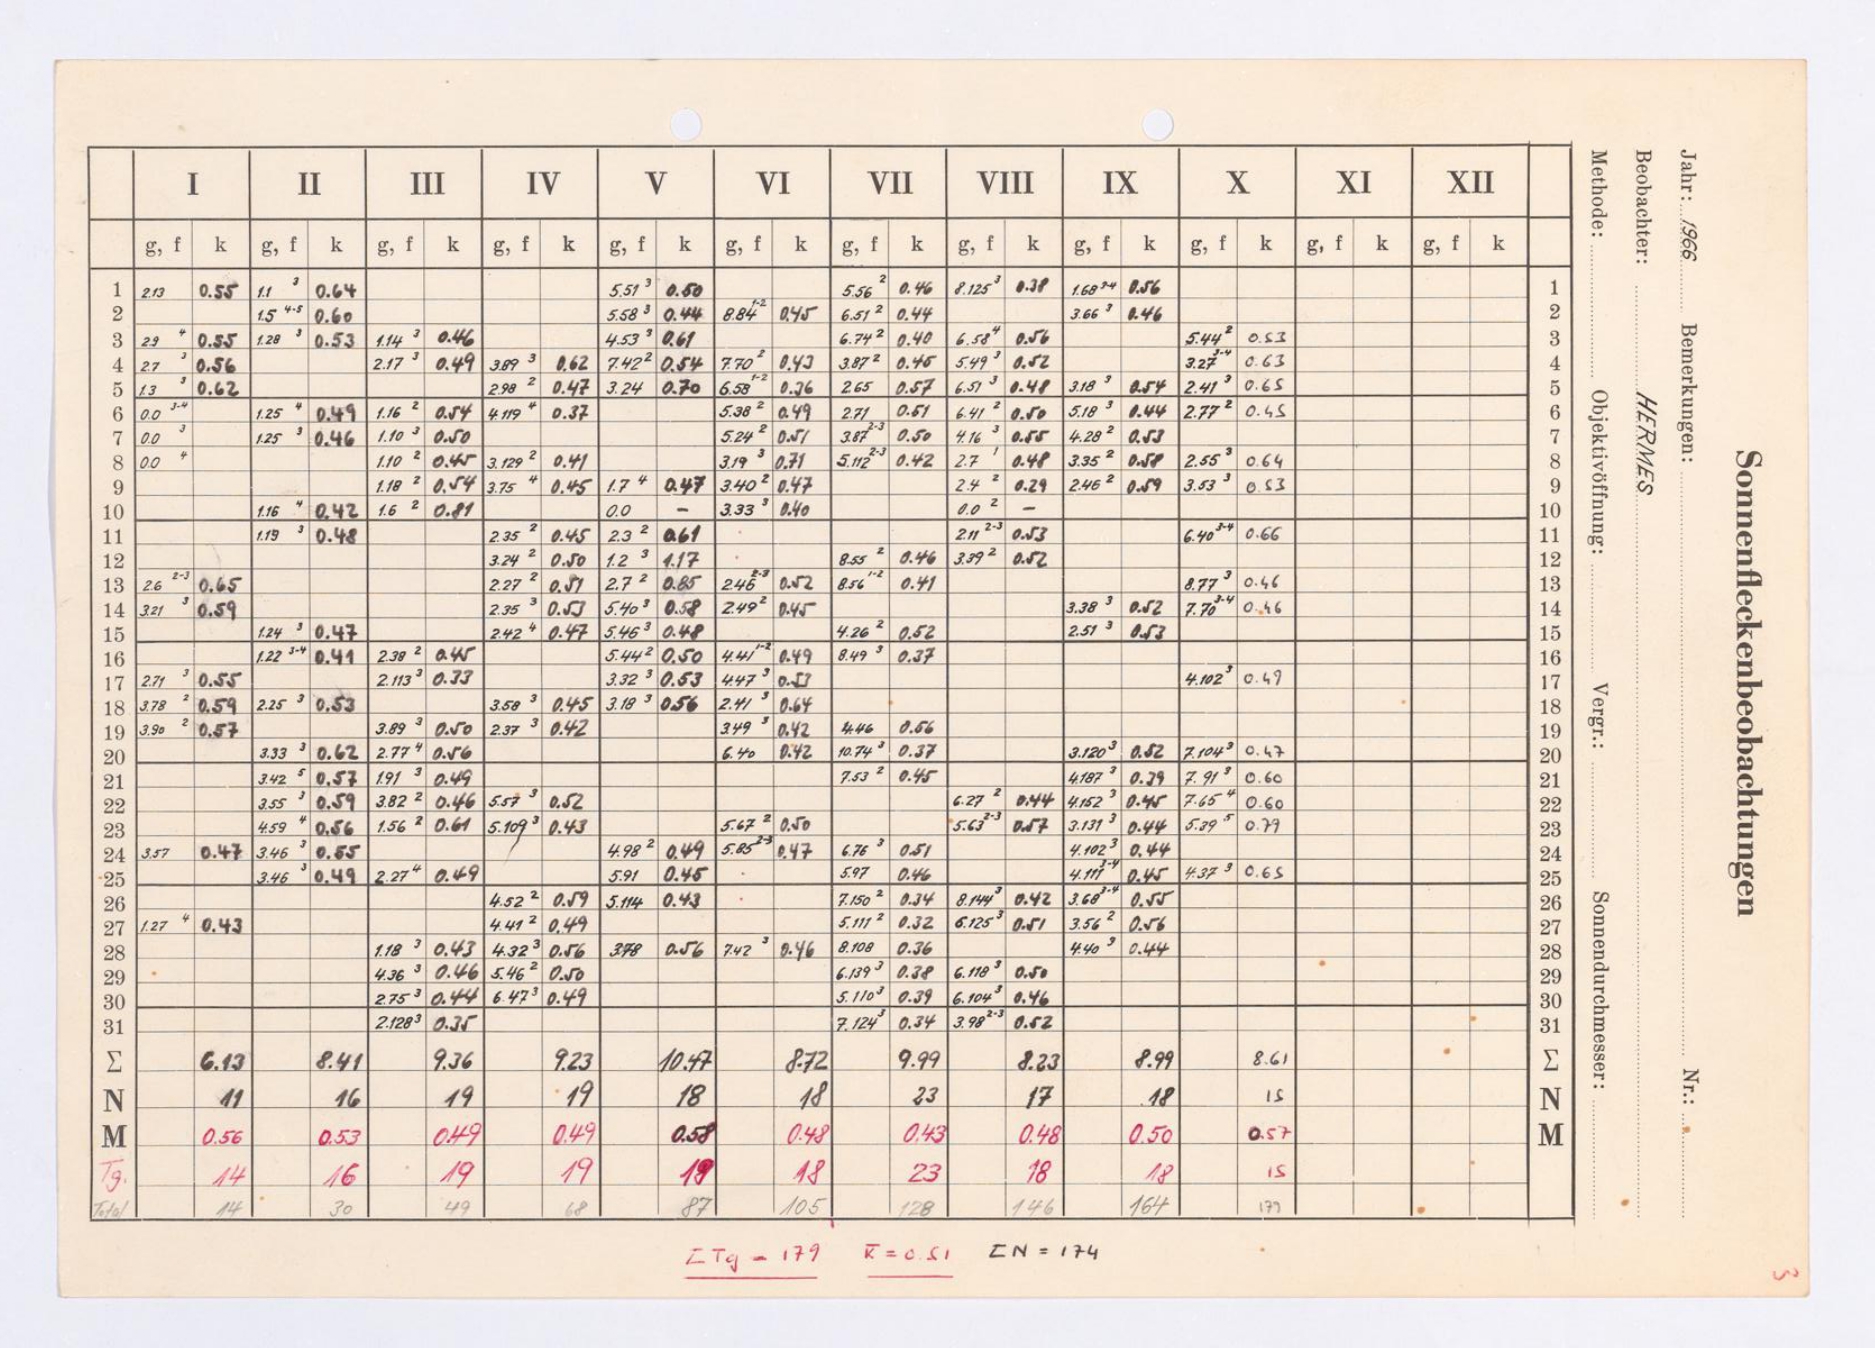 Sonnenfleckenbeobachtungen
Jahr: 1966 Bemerkungen: Nr.:
Beobachter: HERMES
Methode: Objektivöffnung: Vergr.: Sonnendurchmesser:
I II III IV V VI VII VIII IX X XI XII
g, f k g, f k g, f k g, f k g, f k g, f k g, f k g, f k g, f k g, f k g, f k g, f k
1 2.13 0.55 1.1 3 0.64 5.51 3 0.50 5.56 2 0.46 8.125 3 0.38 1.68 3-4 0.56 1
2 1.5 4-5 0.60 5.58 3 0.44 8.84 1-2 0.45 6.51 2 0.44 3.66 3 0.46 2
3 2.9 4 0.55 1.28 3 0.53 1.14 3 0.46 4.53 3 0.61 6.74 2 0.40 6.58 4 0.56 5.44 2 0.53 3
4 2.7 3 0.56 2.17 3 0.49 3.89 3 0.62 7.42 2 0.54 7.70 2 0.43 3.87 2 0.45 5.49 3 0.52 3.27 3-4 0.63 4
5 1.3 3 0.62 2.98 2 0.47 3.24 0.70 6.58 1-2 0.36 2.65 0.57 6.51 3 0.48 3.18 3 0.54 2.41 3 0.65 5
6 0.0 3-4 1.25 4 0.49 1.16 2 0.54 4.119 4 0.37 5.38 2 0.49 2.71 0.51 6.41 2 0.50 5.18 3 0.44 2.77 2 0.45 6
7 0.0 3 1.25 3 0.46 1.10 3 0.50 5.24 2 0.51 3.87 2-3 0.50 4.16 3 0.55 4.28 2 0.53 7
8 0.0 4 1.10 2 0.45 3.129 2 0.41 3.19 3 0.71 5.112 2-3 0.42 2.7 1 0.48 3.35 2 0.58 2.55 3 0.64 8
9 1.18 2 0.54 3.75 4 0.45 1.7 4 0.47 3.40 2 0.47 2.4 2 0.29 2.46 2 0.59 3.53 3 0.53 9
10 1.16 4 0.42 1.6 2 0.81 0.0 – 3.33 3 0.40 0.0 2 – 10
11 1.19 3 0.48 2.35 2 0.45 2.3 2 0.61 2.11 2-3 0.53 6.40 3-4 0.66 11
12 3.24 2 0.50 1.2 3 1.17 8.55 2 0.46 3.39 2 0.52 12
13 2.6 2-3 0.65 2.27 2 0.51 2.7 2 0.85 2.46 2-3 0.52 8.56 1-2 0.41 8.77 3 0.46 13
14 3.21 3 0.59 2.35 3 0.53 5.40 3 0.58 2.49 2 0.45 3.38 3 0.52 7.70 3-4 0.46 14
15 1.24 3 0.47 2.42 4 0.47 5.46 3 0.48 4.26 2 0.52 2.51 3 0.53 15
16 1.22 3-4 0.41 2.38 2 0.45 5.44 2 0.50 4.41 1-2 0.49 8.49 3 0.37 16
17 2.71 3 0.55 2.113 3 0.33 3.32 3 0.53 4.47 3 0.53 4.102 3 0.49 17
18 3.78 2 0.59 2.25 3 0.53 3.58 3 0.45 3.18 3 0.56 2.41 3 0.64 18
19 3.90 2 0.57 3.89 3 0.50 2.37 3 0.42 3.49 3 0.42 4.46 0.56 19
20 3.33 3 0.62 2.77 4 0.56 6.40 0.42 10.74 3 0.37 3.120 3 0.52 7.104 3 0.47 20
21 3.42 5 0.57 1.91 3 0.49 7.53 2 0.45 4.187 3 0.39 7.91 3 0.60 21
22 3.55 3 0.59 3.82 2 0.46 5.57 3 0.52 6.27 2 0.44 4.152 3 0.45 7.65 4 0.60 22
23 4.59 4 0.56 1.56 2 0.61 5.109 3 0.43 5.67 2 0.50 5.63 2-3 0.57 3.131 3 0.44 5.39 5 0.79 23
24 3.57 0.47 3.46 3 0.55 4.98 2 0.49 5.85 2-3 0.47 6.76 3 0.51 4.102 3 0.44 24
25 3.46 3 0.49 2.27 4 0.49 5.91 0.45 5.97 0.46 4.111 3-4 0.45 4.37 3 0.65 25
26 4.52 2 0.59 5.114 0.43 7.150 2 0.34 8.144 3 0.42 3.68 3-4 0.55 26
27 1.27 4 0.43 4.41 2 0.49 5.111 2 0.32 6.125 3 0.51 3.56 2 0.56 27
28 1.18 3 0.43 4.32 3 0.56 3.78 0.56 7.42 3 0.46 8.108 0.36 4.40 3 0.44 28
29 4.36 3 0.46 5.46 2 0.50 6.139 3 0.38 6.118 3 0.50 29
30 2.75 3 0.44 6.47 3 0.49 5.110 3 0.39 6.104 3 0.46 30
31 2.128 3 0.35 7.124 3 0.34 3.98 2-3 0.52 31
Σ 6.13 8.41 9.36 9.23 10.47 8.72 9.99 8.23 8.99 8.61 Σ
N 11 16 19 19 18 18 23 17 18 15 N
M 0.56 0.53 0.49 0.49 0.58 0.48 0.43 0.48 0.50 0.57 M
Tg. 14 16 19 19 19 18 23 18 18 15
Total 14 30 49 68 87 105 128 146 164 179
ΣTg = 179 k̄ = 0.51 ΣN = 174